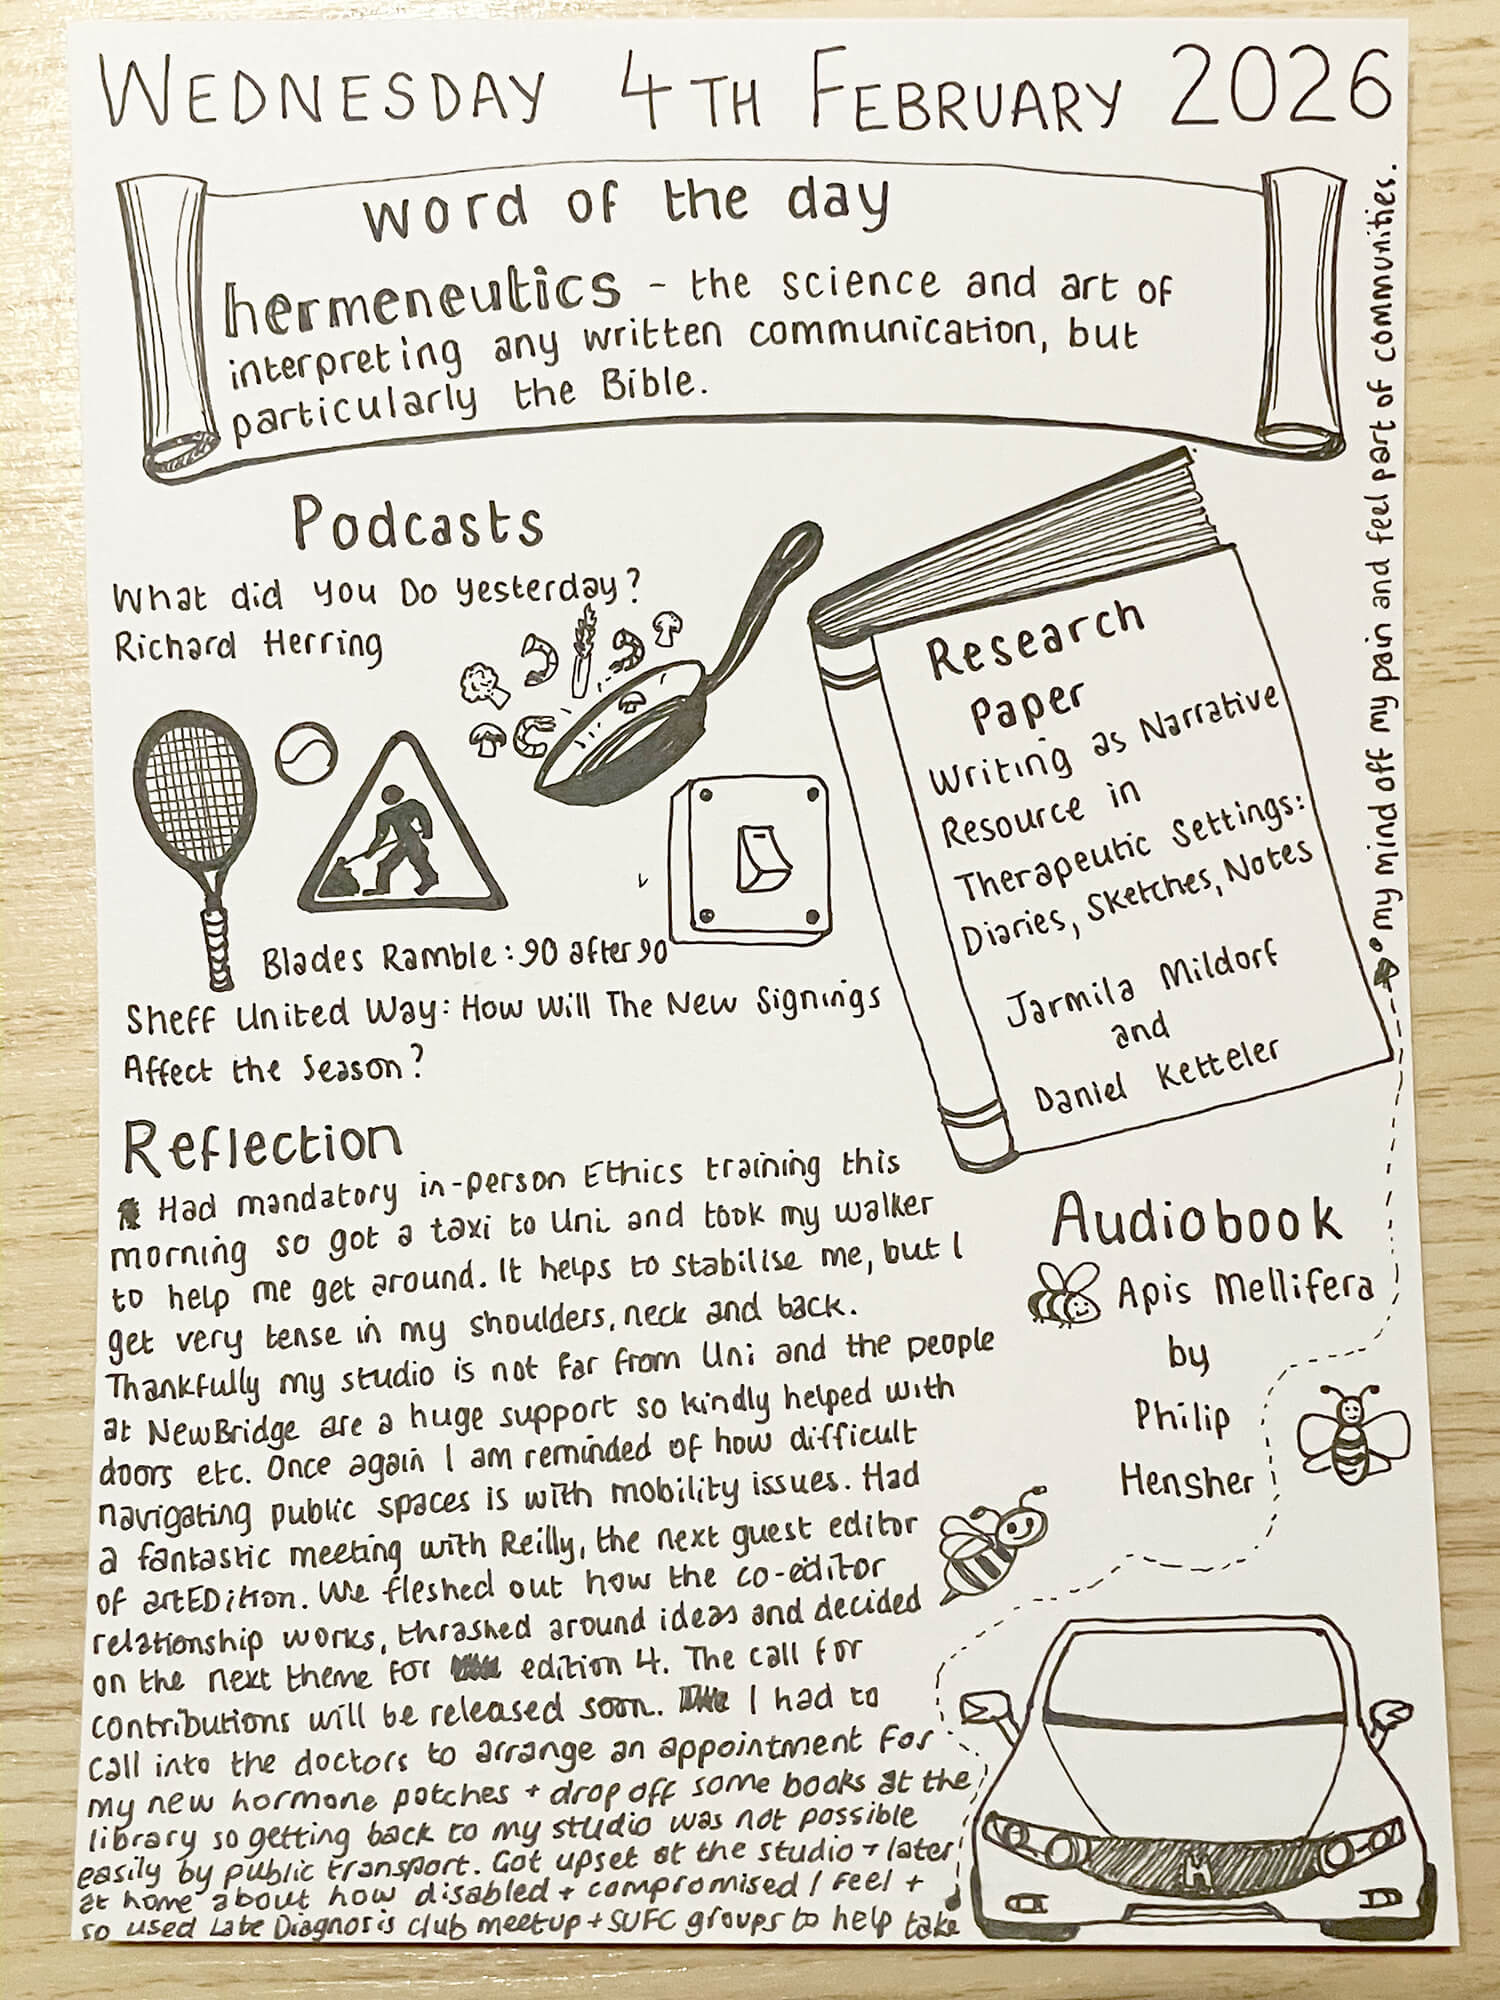 WEDNESDAY 4TH FEBRUARY 2026
word of the day
hermeneutics - the science and art of
interpreting any written communication, but
particularly the Bible.
Podcasts
What did you Do yesterday?
Richard Herring
Blades Ramble: 90 after 90
Sheff United Way: How Will The New Signings
Affect the Season?
Research
Paper
Writing as Narrative
Resource in
Therapeutic Settings:
Diaries, Sketches, Notes
Jarmila Mildorf
and
Daniel Ketteler
Reflection
Had mandatory in-person Ethics training this
morning so got a taxi to Uni and took my walker
to help me get around. It helps to stabilise me, but I
get very tense in my shoulders, neck and back.
Thankfully my studio is not far from Uni and the people
at NewBridge are a huge support so kindly helped with
doors etc. Once again I am reminded of how difficult
navigating public spaces is with mobility issues. Had
a fantastic meeting with Reilly, the next guest editor
of artEDition. We fleshed out how the co-editor
relationship works, thrashed around ideas and decided
on the next theme for edition 4. The call for
contributions will be released soon. I had to
call into the doctors to arrange an appointment for
my new hormone patches + drop off some books at the
library so getting back to my studio was not possible
easily by public transport. Got upset at the studio + later
at home about how disabled + compromised I feel +
so used Late Diagnosis club meetup + SUFC groups to help take
my mind off my pain and feel part of communities.
Audiobook
Apis Mellifera
by
Philip
Hensher